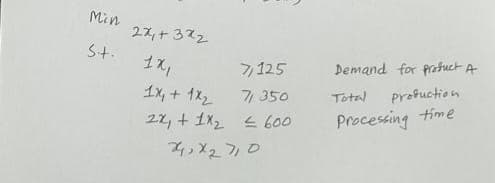 Min
2x₁ + 3x₂
S.t.
1x₁ ⩾ 125 Demand for product A
1x₁ + 1x₂ ⩾ 350 Total production
2x₁ + 1x₂ ≤ 600 Processing time
x₁, x₂ ⩾ 0